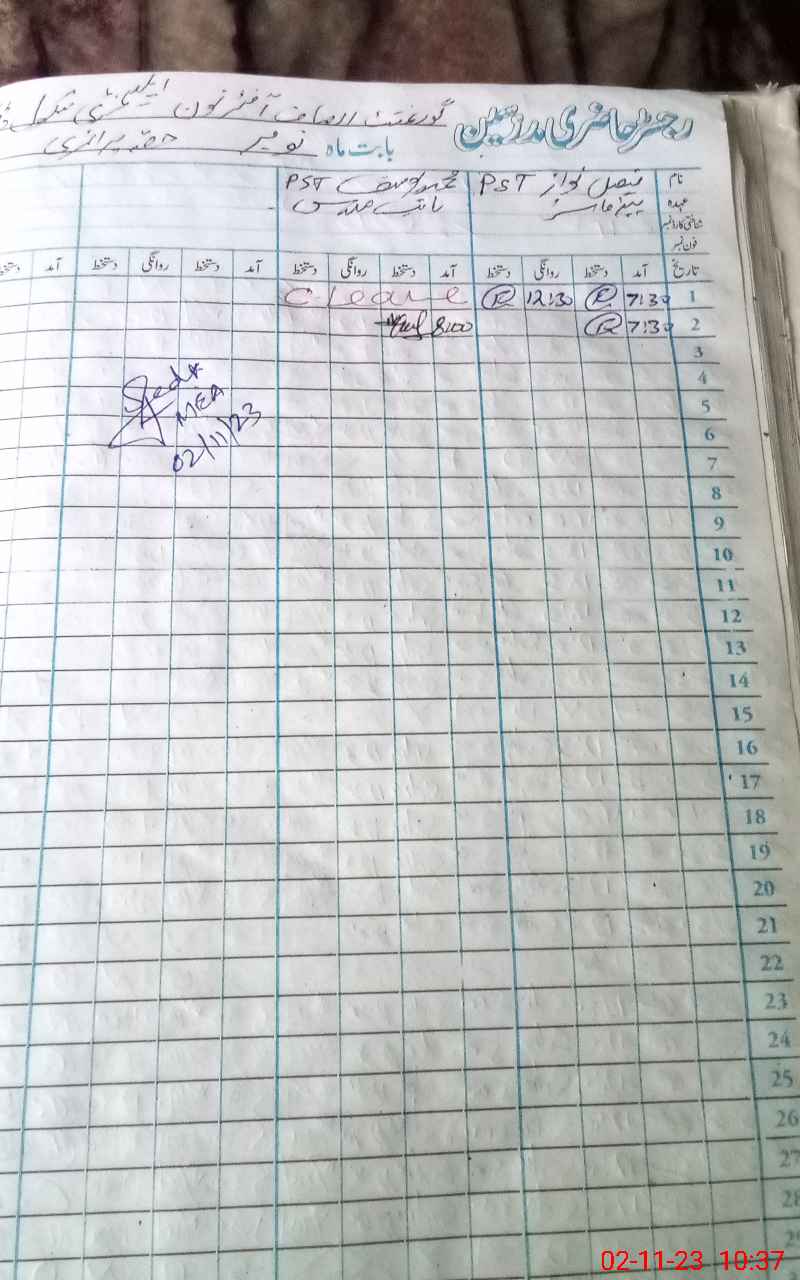 رجسٹر حاضری مدرسین
گورنمنٹ انصاف آفٹر نون ایلیمنٹری سکول
بابت ماہ نومبر حصہ پرائمری
نام فیصل نواز PST محمد یوسف PST
عہدہ
شناختی کارڈ نمبر
فون نمبر
تاریخ آمد دستخط روانگی دستخط آمد دستخط روانگی دستخط آمد دستخط روانگی دستخط آمد
1 7:30 12:30 C-leave
2 7:30 8:00
3
4
5
6
7
8
9
10
11
12
13
14
15
16
17
18
19
20
21
22
23
24
25
26
27
28
MEA
02/11/23
02-11-23 10:37